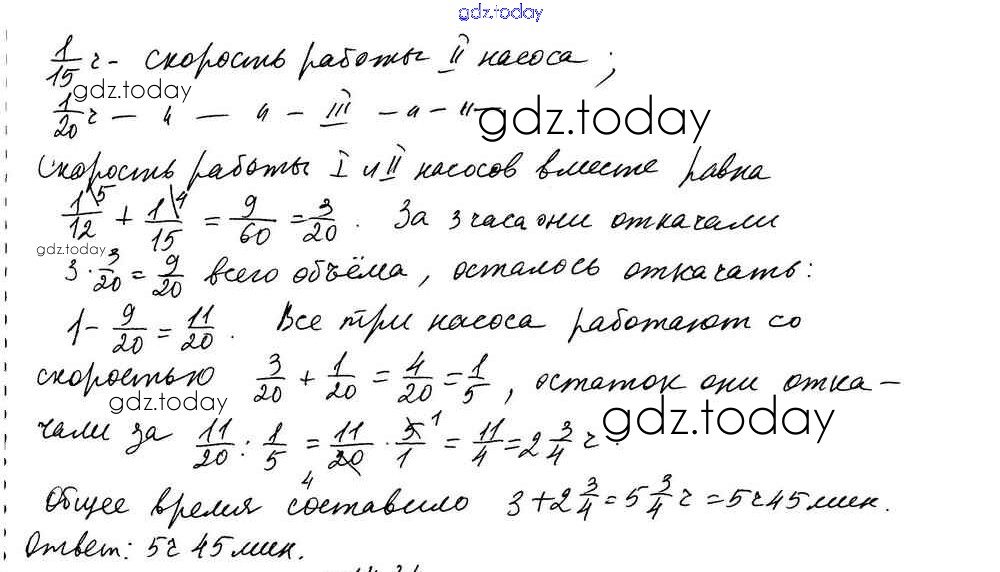 gdz.today
1/15 ч - скорость работы II насоса ;
gdz.today
1/20 ч — " — " - III - " - " -
gdz.today
Скорость работы I и II насосов вместе равна
1\5/12 + 1\4/15 = 9/60 = 3/20 . За 3 часа они откачали
gdz.today
3 · 3/20 = 9/20 всего объёма, осталось откачать:
1 - 9/20 = 11/20 . Все три насоса работают со
скоростью 3/20 + 1/20 = 4/20 = 1/5 , остаток они отка-
gdz.today
gdz.today
чали за 11/20 : 1/5 = 11/20 4 · 5 1/1 = 11/4 = 2 3/4 ч .
Общее время составило 3 + 2 3/4 = 5 3/4 ч = 5ч 45 мин.
Ответ: 5ч 45 мин.